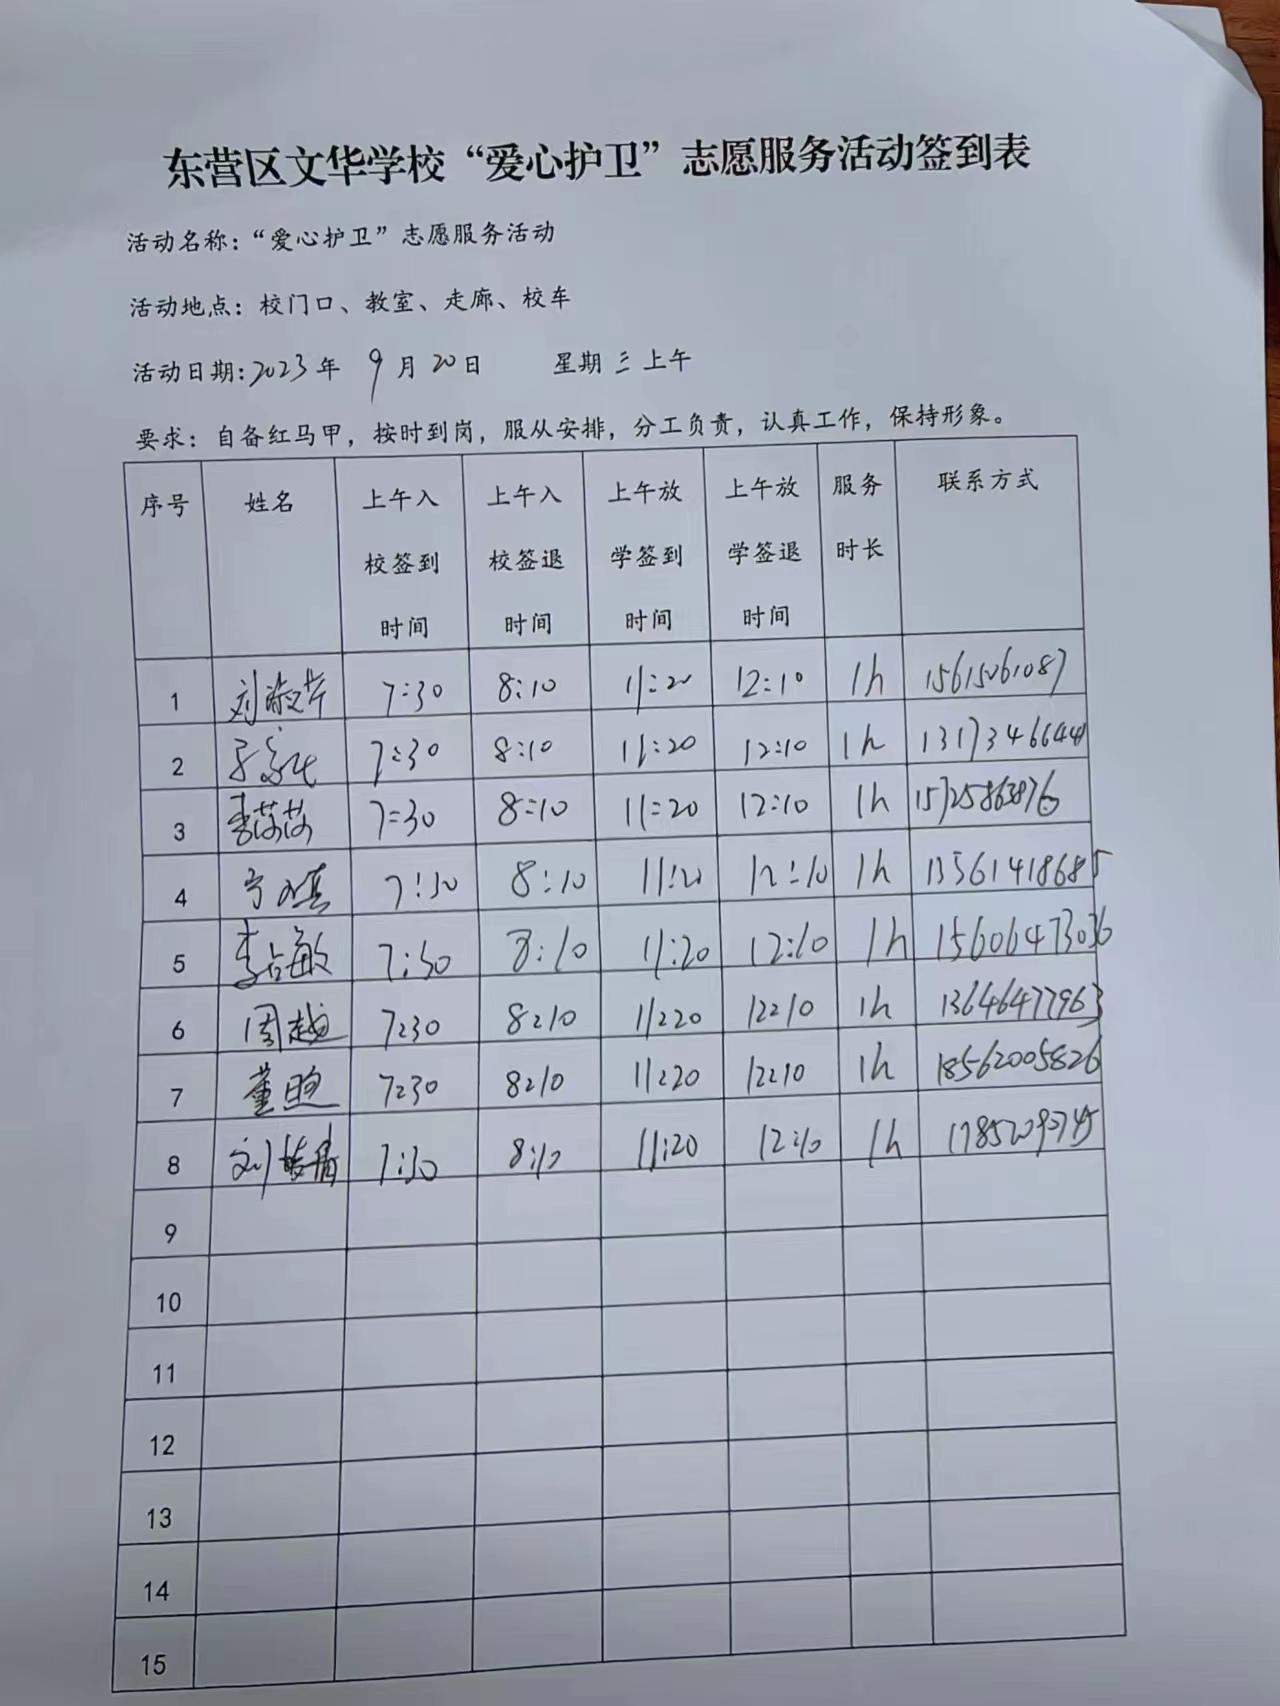 东营区文华学校“爱心护卫”志愿服务活动签到表
活动名称：“爱心护卫”志愿服务活动
活动地点：校门口、教室、走廊、校车
活动日期:2023年 9月20日 星期三上午
要求：自备红马甲，按时到岗，服从安排，分工负责，认真工作，保持形象。
序号 姓名 上午入校签到时间 上午入校签退时间 上午放学签到时间 上午放学签退时间 服务时长 联系方式
1 刘淑芹 7:30 8:10 11:20 12:10 1h 15615061087
2 7:30 8:10 11:20 12:10 1h
3 李莎莎 7:30 8:10 11:20 12:10 1h 15725863876
4 7:30 8:10 11:20 12:10 1h 13561418685
5 李占敏 7:30 8:10 11:20 12:10 1h 15606473036
6 周越 7:30 8:10 11:20 12:10 1h 13646477963
7 董煦 7:30 8:10 11:20 12:10 1h 18562005826
8 刘 7:30 8:10 11:20 12:10 1h
9
10
11
12
13
14
15